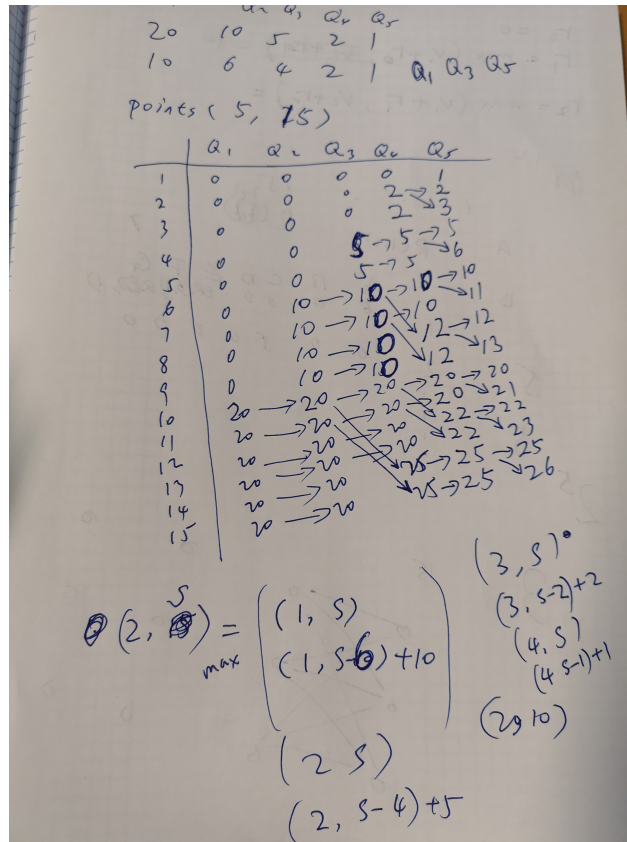 Q₂ Q₃ Q₄ Q₅
20 10 5 2 1
10 6 4 2 1 Q₁ Q₃ Q₅
points ( 5, 15)
Q₁ Q₂ Q₃ Q₄ Q₅
1 0 0 0 0 1
2 0 0 0 2 → 2
3 0 0 0 2 3
4 0 0 5 → 5 → 5
5 0 0 5 → 5 6
6 0 10 → 10 → 10 → 10
7 0 10 → 10 → 10 11
8 0 10 → 10 12 → 12
9 0 10 → 10 12 13
10 20 → 20 → 20 → 20 → 20
11 20 → 20 → 20 → 20 21
12 20 → 20 → 20 22 → 22
13 20 → 20 → 20 22 23
14 20 → 20 25 → 25 → 25
15 20 → 20 25 → 25 26
(2, S) = max
(1, S)
(1, S-6) + 10
(2 S)
(2, S-4) + 5
(3, S)
(3, S-2) + 2
(4, S)
(4 S-1) + 1
(20 10)